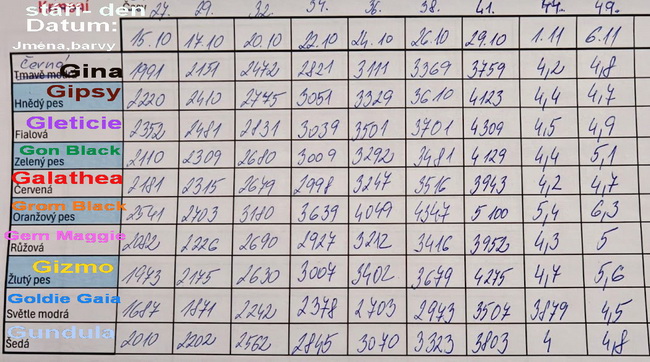 Krmení
starí- den Dny 27. 29. 32. 34. 36. 38. 41. 44. 49.
Datum: 15.10 17.10 20.10 22.10 24.10 26.10 29.10 1.11 6.11
Jména,barvy
Černá
Tmavě modrá Gina 1991 2151 2472 2821 3111 3369 3759 4,2 4,8
Gipsy
Hnědý pes 2220 2410 2775 3051 3329 3610 4123 4,4 4,7
Gleticie
Fialová 2352 2481 2831 3039 3501 3701 4309 4,5 4,9
Gon Black
Zelený pes 2110 2309 2680 3009 3292 3481 4129 4,4 5,1
Galathea
Červená 2181 2315 2679 2998 3247 3516 3943 4,2 4,7
Grom Black
Oranžový pes 2541 2703 3180 3639 4049 4347 5100 5,4 6,3
Gem Maggie
Růžová 2226 2690 2927 3212 3416 3952 4,3 5
Gizmo
Žlutý pes 1973 2175 2630 3007 3402 3679 4275 4,7 5,6
Goldie Gaia
Světle modrá 1687 1871 2242 2378 2703 2973 3507 3879 4,5
Gundula
Šedá 2010 2202 2562 2845 3070 3323 3803 4 4,8